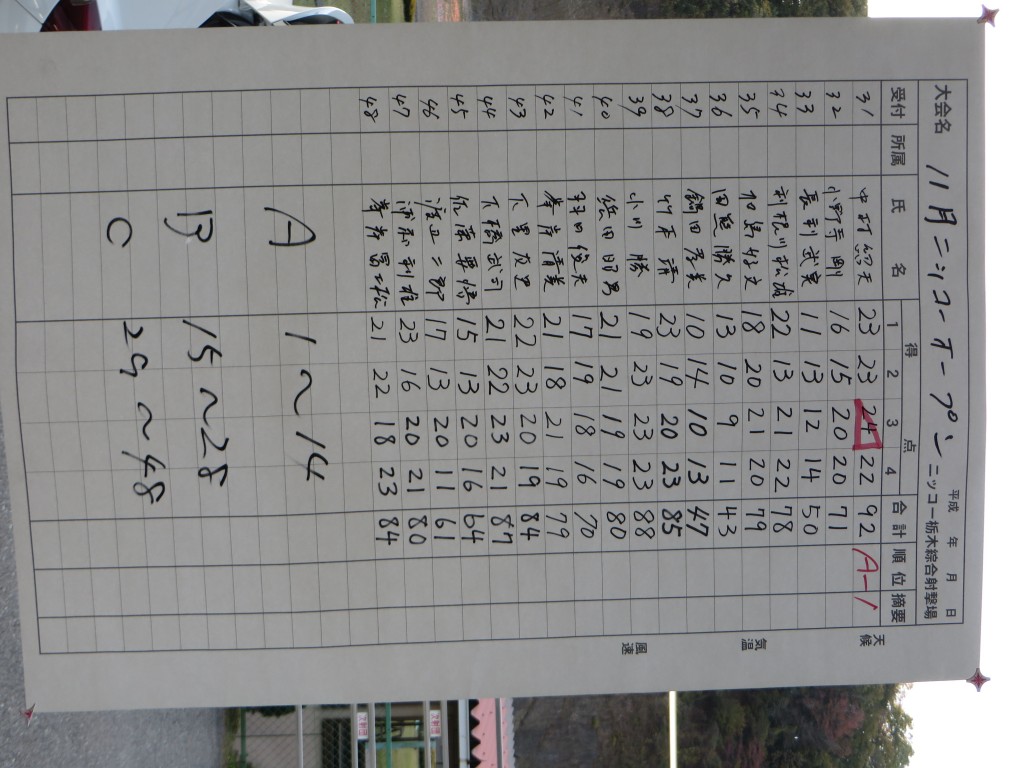 大会名 11月ニッコーオープン
平成 年 月 日
ニッコー栃木綜合射撃場
受付 所属 氏名 得点 合計 順位 摘要
1 2 3 4
31 中村 23 23 24 22 92 A-1
32 小野寺 剛 16 15 20 20 71
33 長利 武 11 13 12 14 50
34 利根川 松雄 22 13 21 22 78
35 18 20 21 20 79
36 田邊 勝久 13 10 9 11 43
37 鎌田 10 14 10 13 47
38 竹本 靖 23 19 20 23 85
39 小川 勝 19 23 23 23 88
40 田 昭男 21 21 19 19 80
41 羽田 俊夫 17 19 18 16 70
42 峯岸 清美 21 18 21 19 79
43 下里 22 23 20 19 84
44 大橋 武司 21 22 23 21 87
45 佐藤 15 13 20 16 64
46 渡辺 二郎 17 13 20 11 61
47 利雄 23 16 20 21 80
48 峯岸 富松 21 22 18 23 84
A 1〜14
B 15〜28
C 29〜48
天候
気温
風速